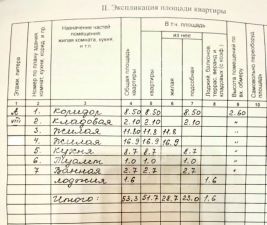 II. Экспликация площади квартиры
Этажи, литера
Номер по плану здания, комнат, кухни, корид. и др.
Назначение частей помещения: жилая комната, кухня и т.п.
Общая площадь квартиры
В т.ч. площадь
квартиры
из нее
жилая
подсобная
Высота помещений по вн. обмеру
1 2 3 4 5 6 7 8 9 10
А 1 Коридор 8.50 8.50 8.50 2.60
VIII 2 Кладовая 2.10 2.10 2.10 "
3 Жилая 11.80 11.8 11.8 "
4 Жилая 16.9 16.9 16.9 "
5 Кухня 8.7 8.7 8.7 "
6 Туалет 1.0 1.0 1.0 "
7 Ванная 2.7 2.7 2.7 "
лоджия 1.6 1.6
Итого: 53.3 51.7 28.7 23.0 1.6